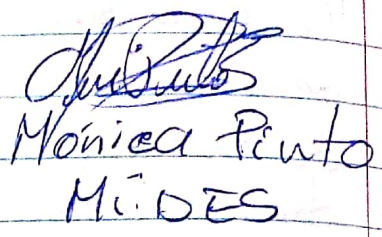 Mónica Pinto
Mi.DES